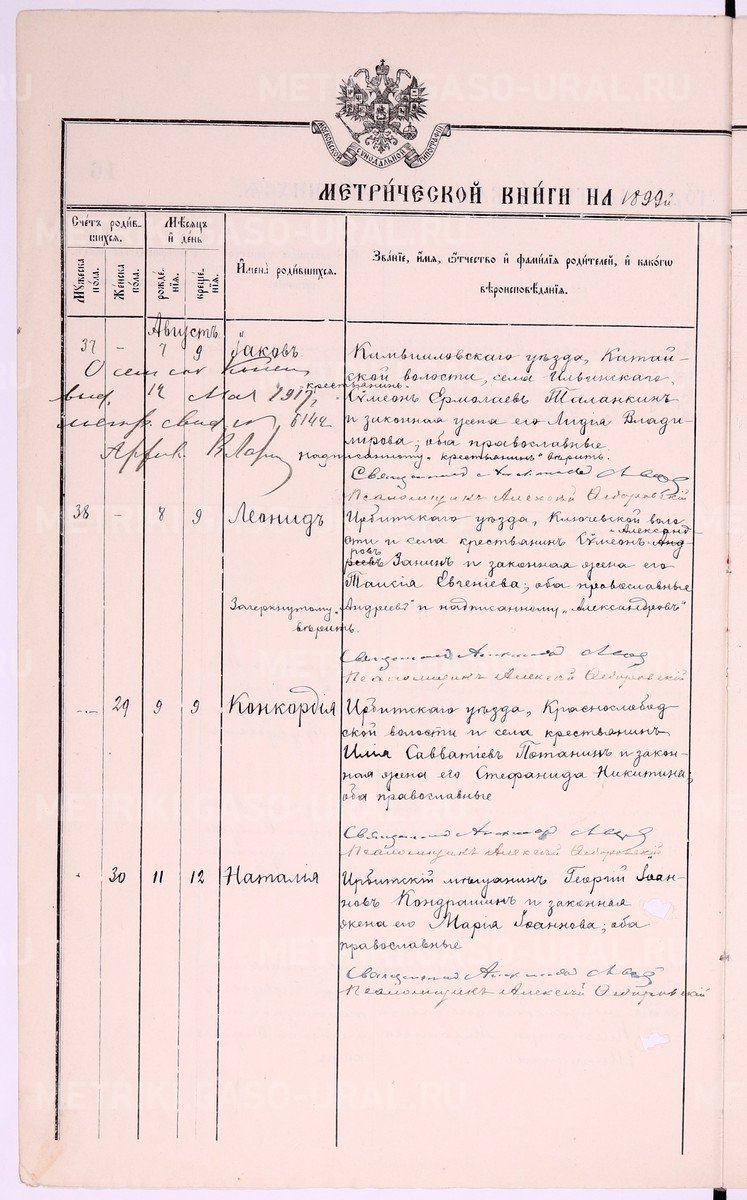 METRIKI.GASO-URAL.RU
МОСКОВСКОЙ СѴНОДАЛЬНОЙ ТИПОГРАФІИ
МЕТРИ́ЧЕСКОЙ КНИ́ГИ НА 1899й
Сче́тъ роди́вшихся.
Мꙋ́жеска пола.
Же́нска пола.
Мѣ́сяцъ и҆ де́нь
рожде́нїѧ.
креще́нїѧ.
И҆мена̀ роди́вшихся.
Зва́нїе, и҆́мя, ѻ҆́тчество и҆ фами́лїя роди́телей, и҆ како́гѡ вѣроисповѣ́данїя.
Августъ
37 - 7 9 Іаковъ
Камышловскаго уѣзда, Китай-
ской волости, села Ильинскаго,
крестьянинъ
Сѵмеонъ Ермолаевъ Таланкинъ
и законная жена его Лидія Влади-
мірова; оба православные
надписанному „крестьянинъ" вѣрить.
О сем
выд. 14 Мая 1917 г.
метр. свид. 6144
Священникъ Александръ
Псаломщикъ Алексѣй Ѳедоровскій
38 - 8 9 Леонидъ
Ирбитскаго уѣзда, Ключевской воло-
сти и села крестьянинъ Сѵмеонъ Анд-
Александ-
реевъ Занинъ и законная жена его
ровъ
Таисія Евгеніева; оба православные
Зачеркнутому „Андреевъ" и надписанному „Александровъ"
вѣрить.
Священникъ Александръ
Псаломщикъ Алексѣй Ѳедоровскій
- 29 9 9 Конкордія
Ирбитскаго уѣзда, Краснослобод-
ской волости и села крестьянинъ
Илія Савватіевъ Потанинъ и закон-
ная жена его Стефанида Никитина;
оба православные
Священникъ Александръ
Псаломщикъ Алексѣй Ѳедоровскій
- 30 11 12 Наталія
Ирбитскій мѣщанинъ Георгій Іоан-
новъ Кондрашинъ и законная
жена его Марія Іоаннова; оба
православные
Священникъ Александръ
Псаломщикъ Алексѣй Ѳедоровскій